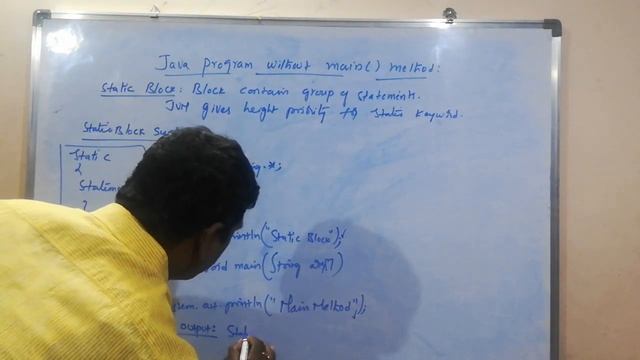 Java program without main() method:
Static Block: Block contain group of statements.
JVM gives height priority for static keyword.
Static Block Sy
Static
{
Statem
}
println("Static Block");
void main(String
System.out.println("Main Method");
output: Stat